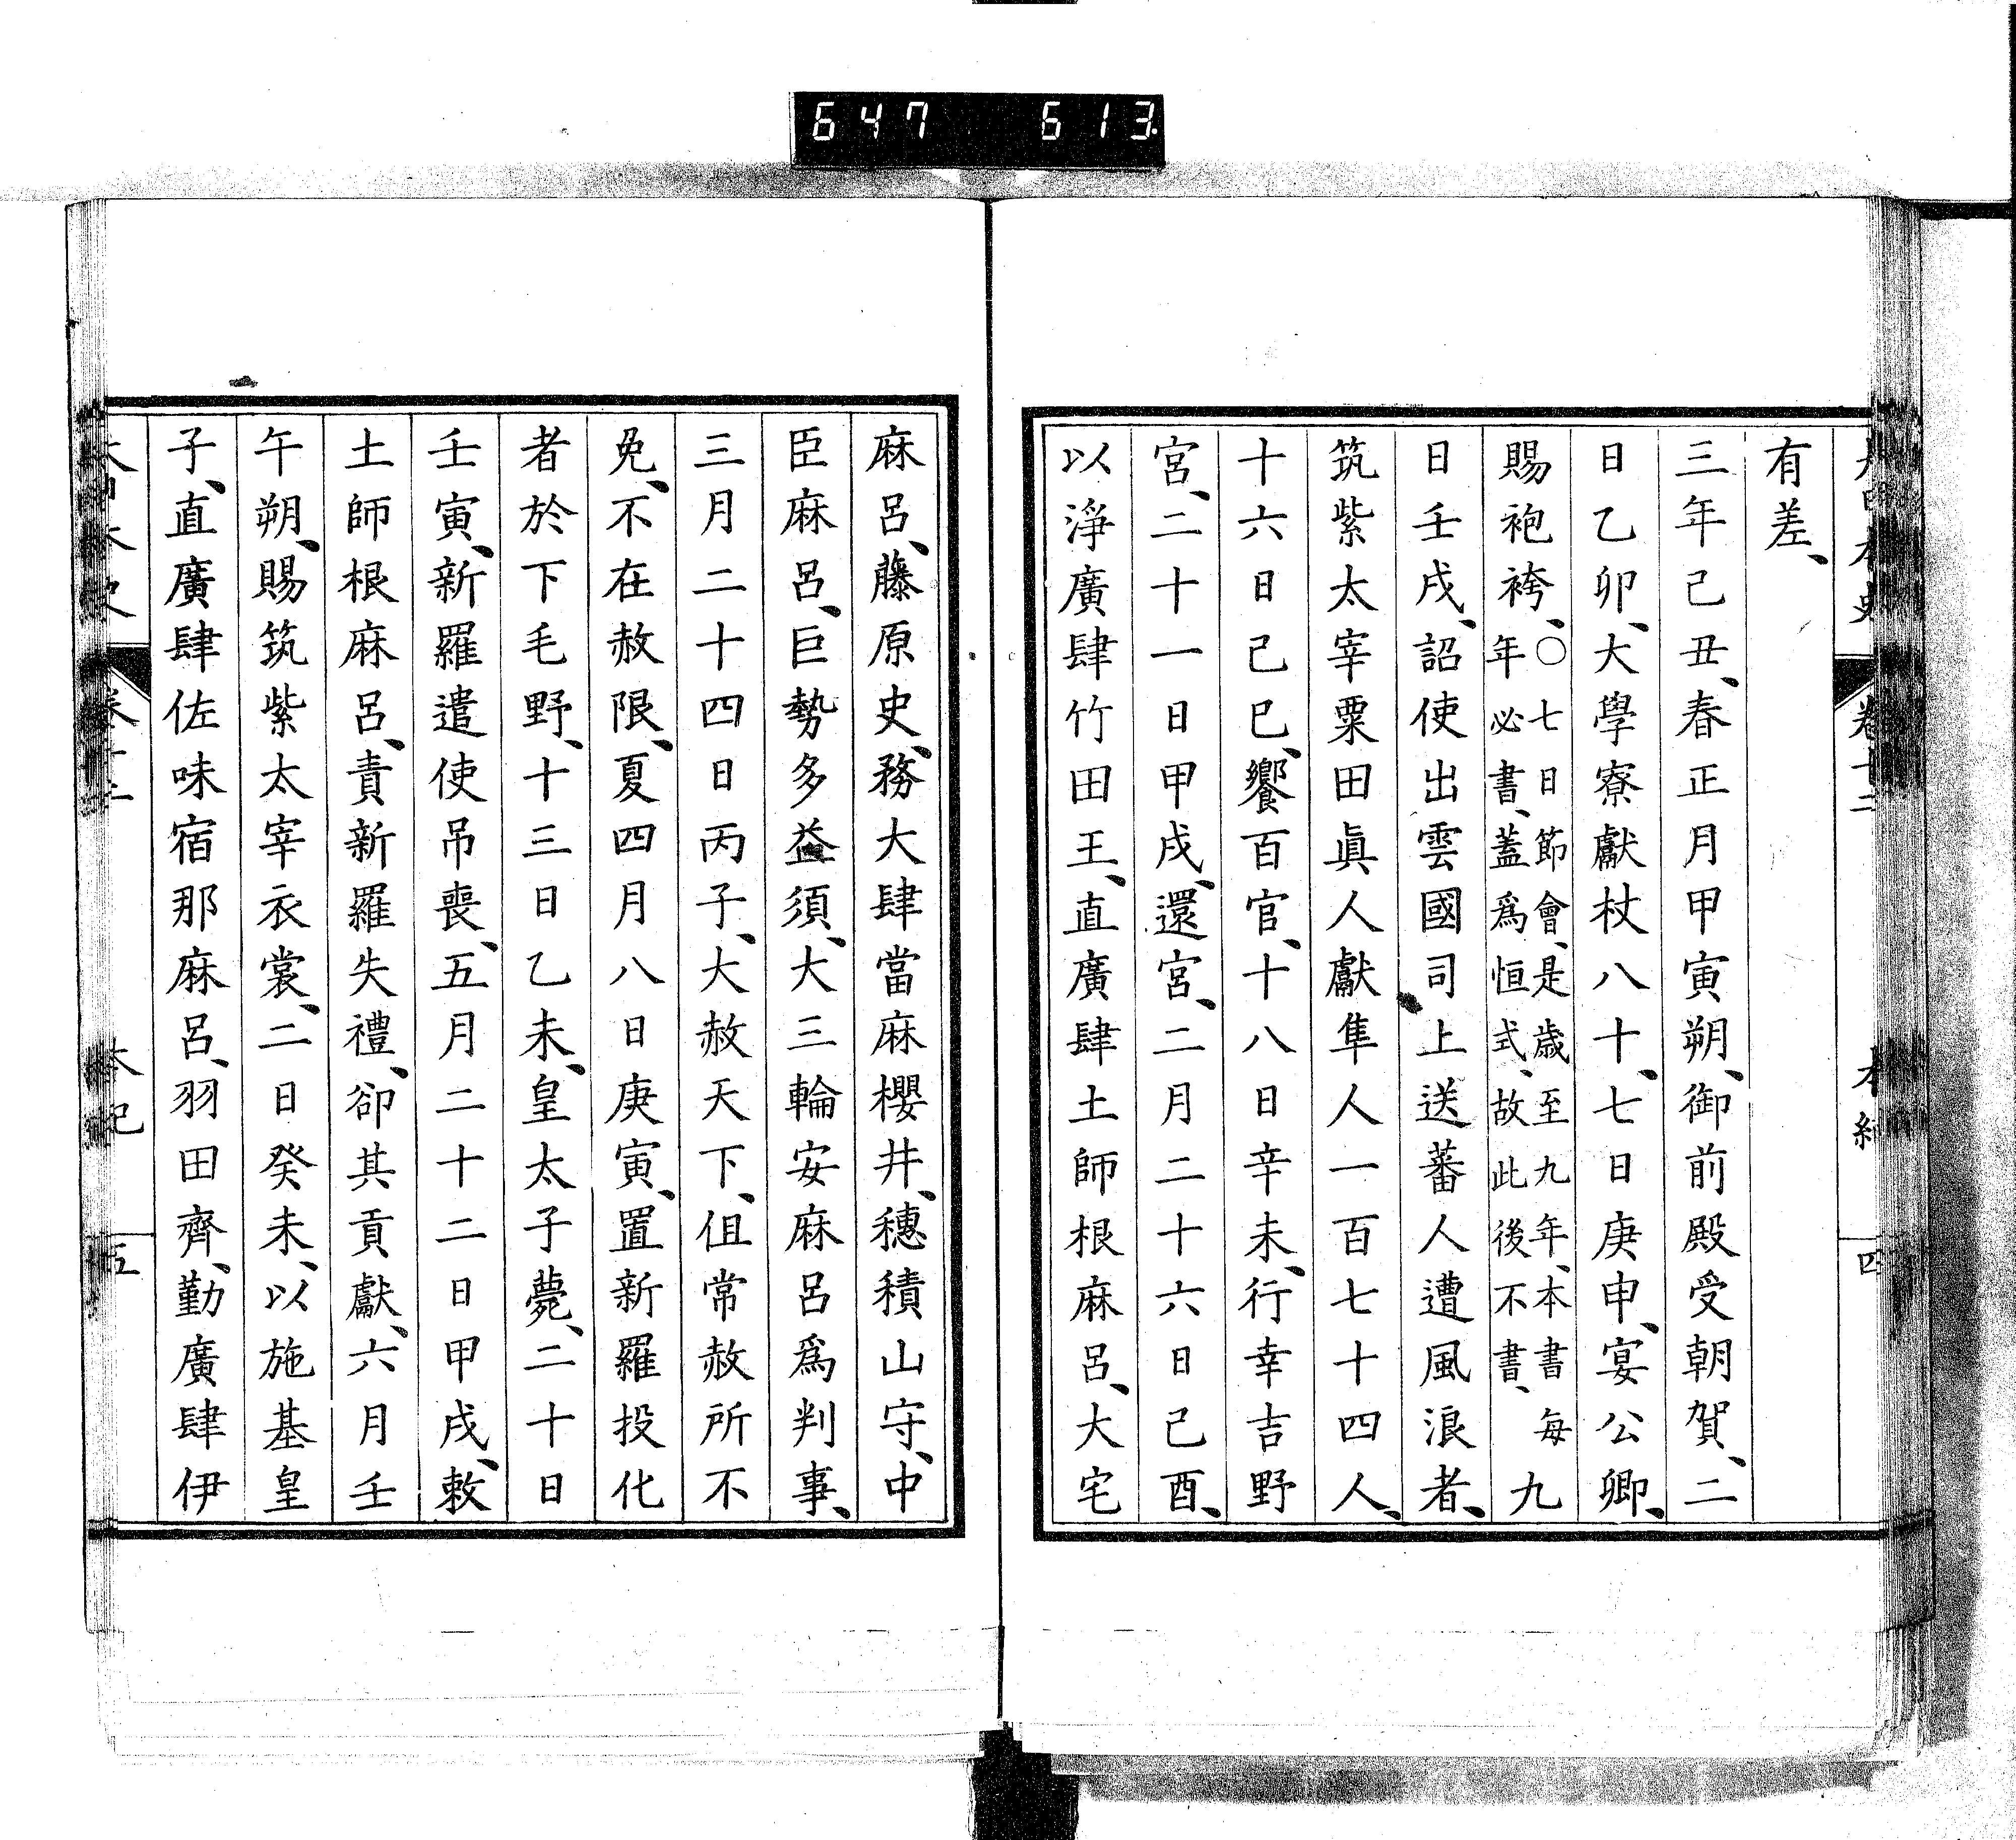 647 613.
有差、
三年己丑、春正月甲寅朔、御前殿受朝賀、二
日乙卯、大學寮獻杖八十、七日庚申、宴公卿、
賜袍袴、〇七日節會、是歲至九年、本書每年必書、蓋爲恒式、故此後不書、九
日壬戌、詔使出雲國司上送蕃人遭風浪者、
筑紫太宰粟田眞人獻隼人一百七十四人、
十六日己巳、饗百官、十八日辛未、行幸吉野
宮、二十一日甲戌、還宮、二月二十六日己酉、
以淨廣肆竹田王、直廣肆土師根麻呂、大宅
麻呂、藤原史、務大肆當麻櫻井、穗積山守、中
臣麻呂、巨勢多益須、大三輪安麻呂爲判事、
三月二十四日丙子、大赦天下、但常赦所不
免、不在赦限、夏四月八日庚寅、置新羅投化
者於下毛野、十三日乙未、皇太子薨、二十日
壬寅、新羅遣使吊喪、五月二十二日甲戌、敕
土師根麻呂、責新羅失禮、卻其貢獻、六月壬
午朔、賜筑紫太宰衣裳、二日癸未、以施基皇
子、直廣肆佐味宿那麻呂、羽田齊、勤廣肆伊
本紀
五